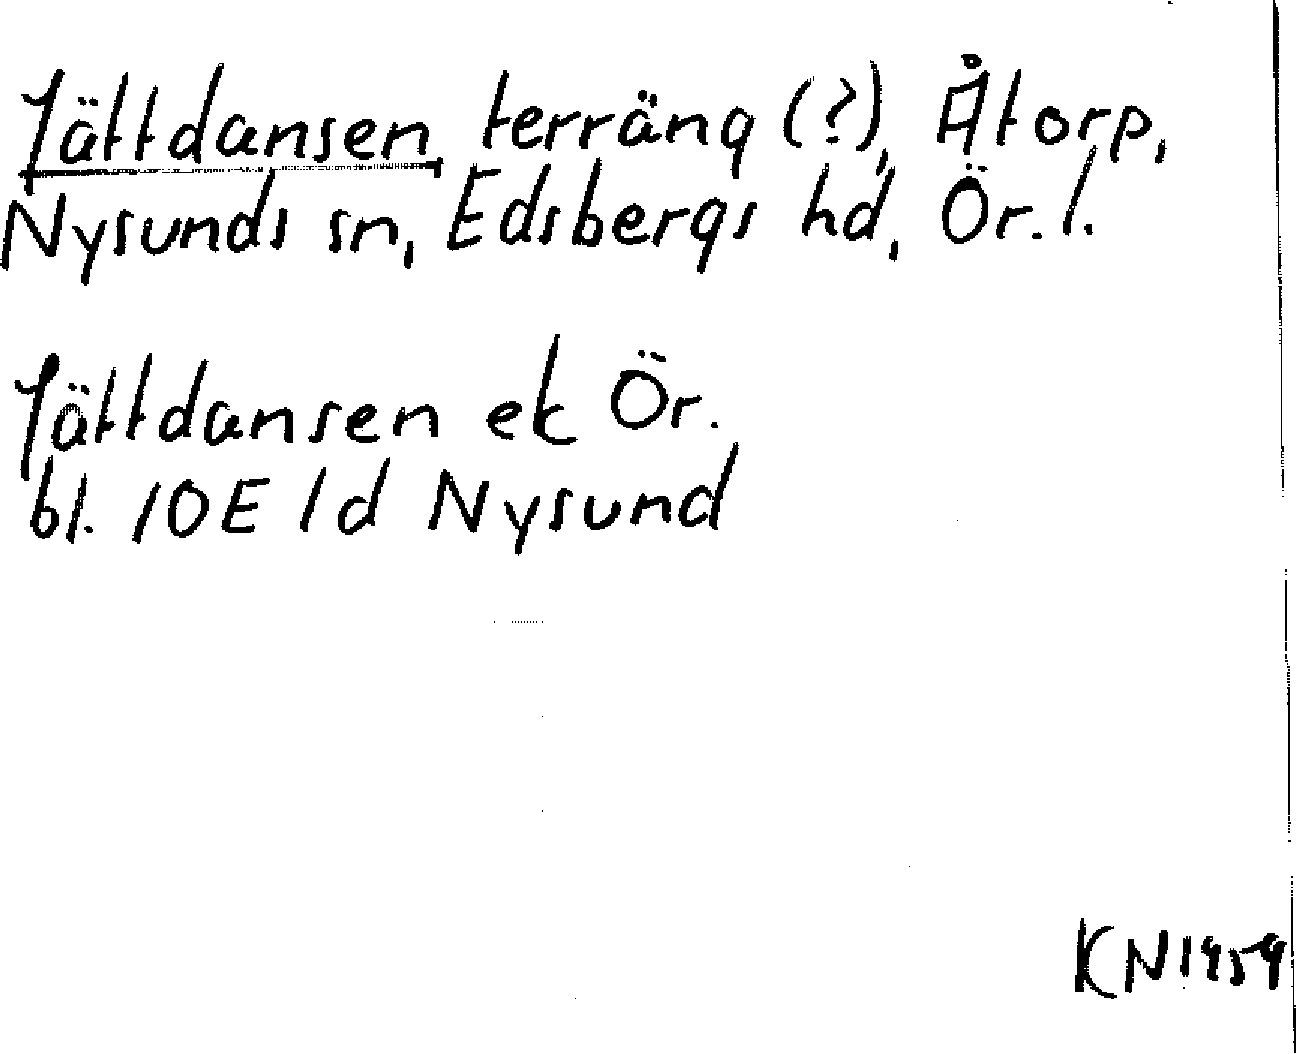 Jättdansen, terräng (?), Åtorp,
Nysunds sn, Edsbergs hd, Ör. l.
Jättdansen ek Ör.
bl. 10E 1d Nysund
KN 1959